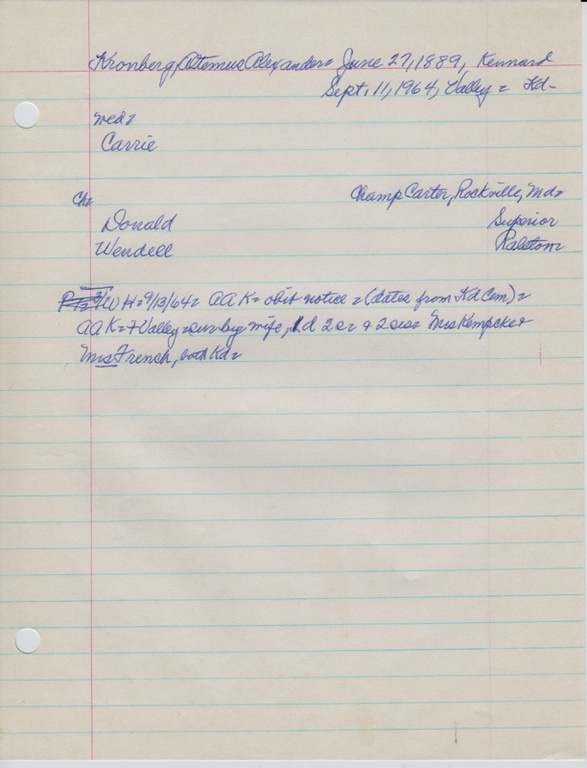 Kronberg, Artemus Alexander= June 27, 1889, Kennard
Sept. 11, 1964, Valley= Kd-
med=
Carrie
Ch= Champ Carter, Rockville, Md=
Donald Superior
Wendell Ralston=
WH=9/13/64= AAK= obit notice=(dates from Kd Cem)=
AAK=7 Valley=surv by wife, 1d 2s= & 2sis= Mrs Kempcke &
Mrs French, both Kd=